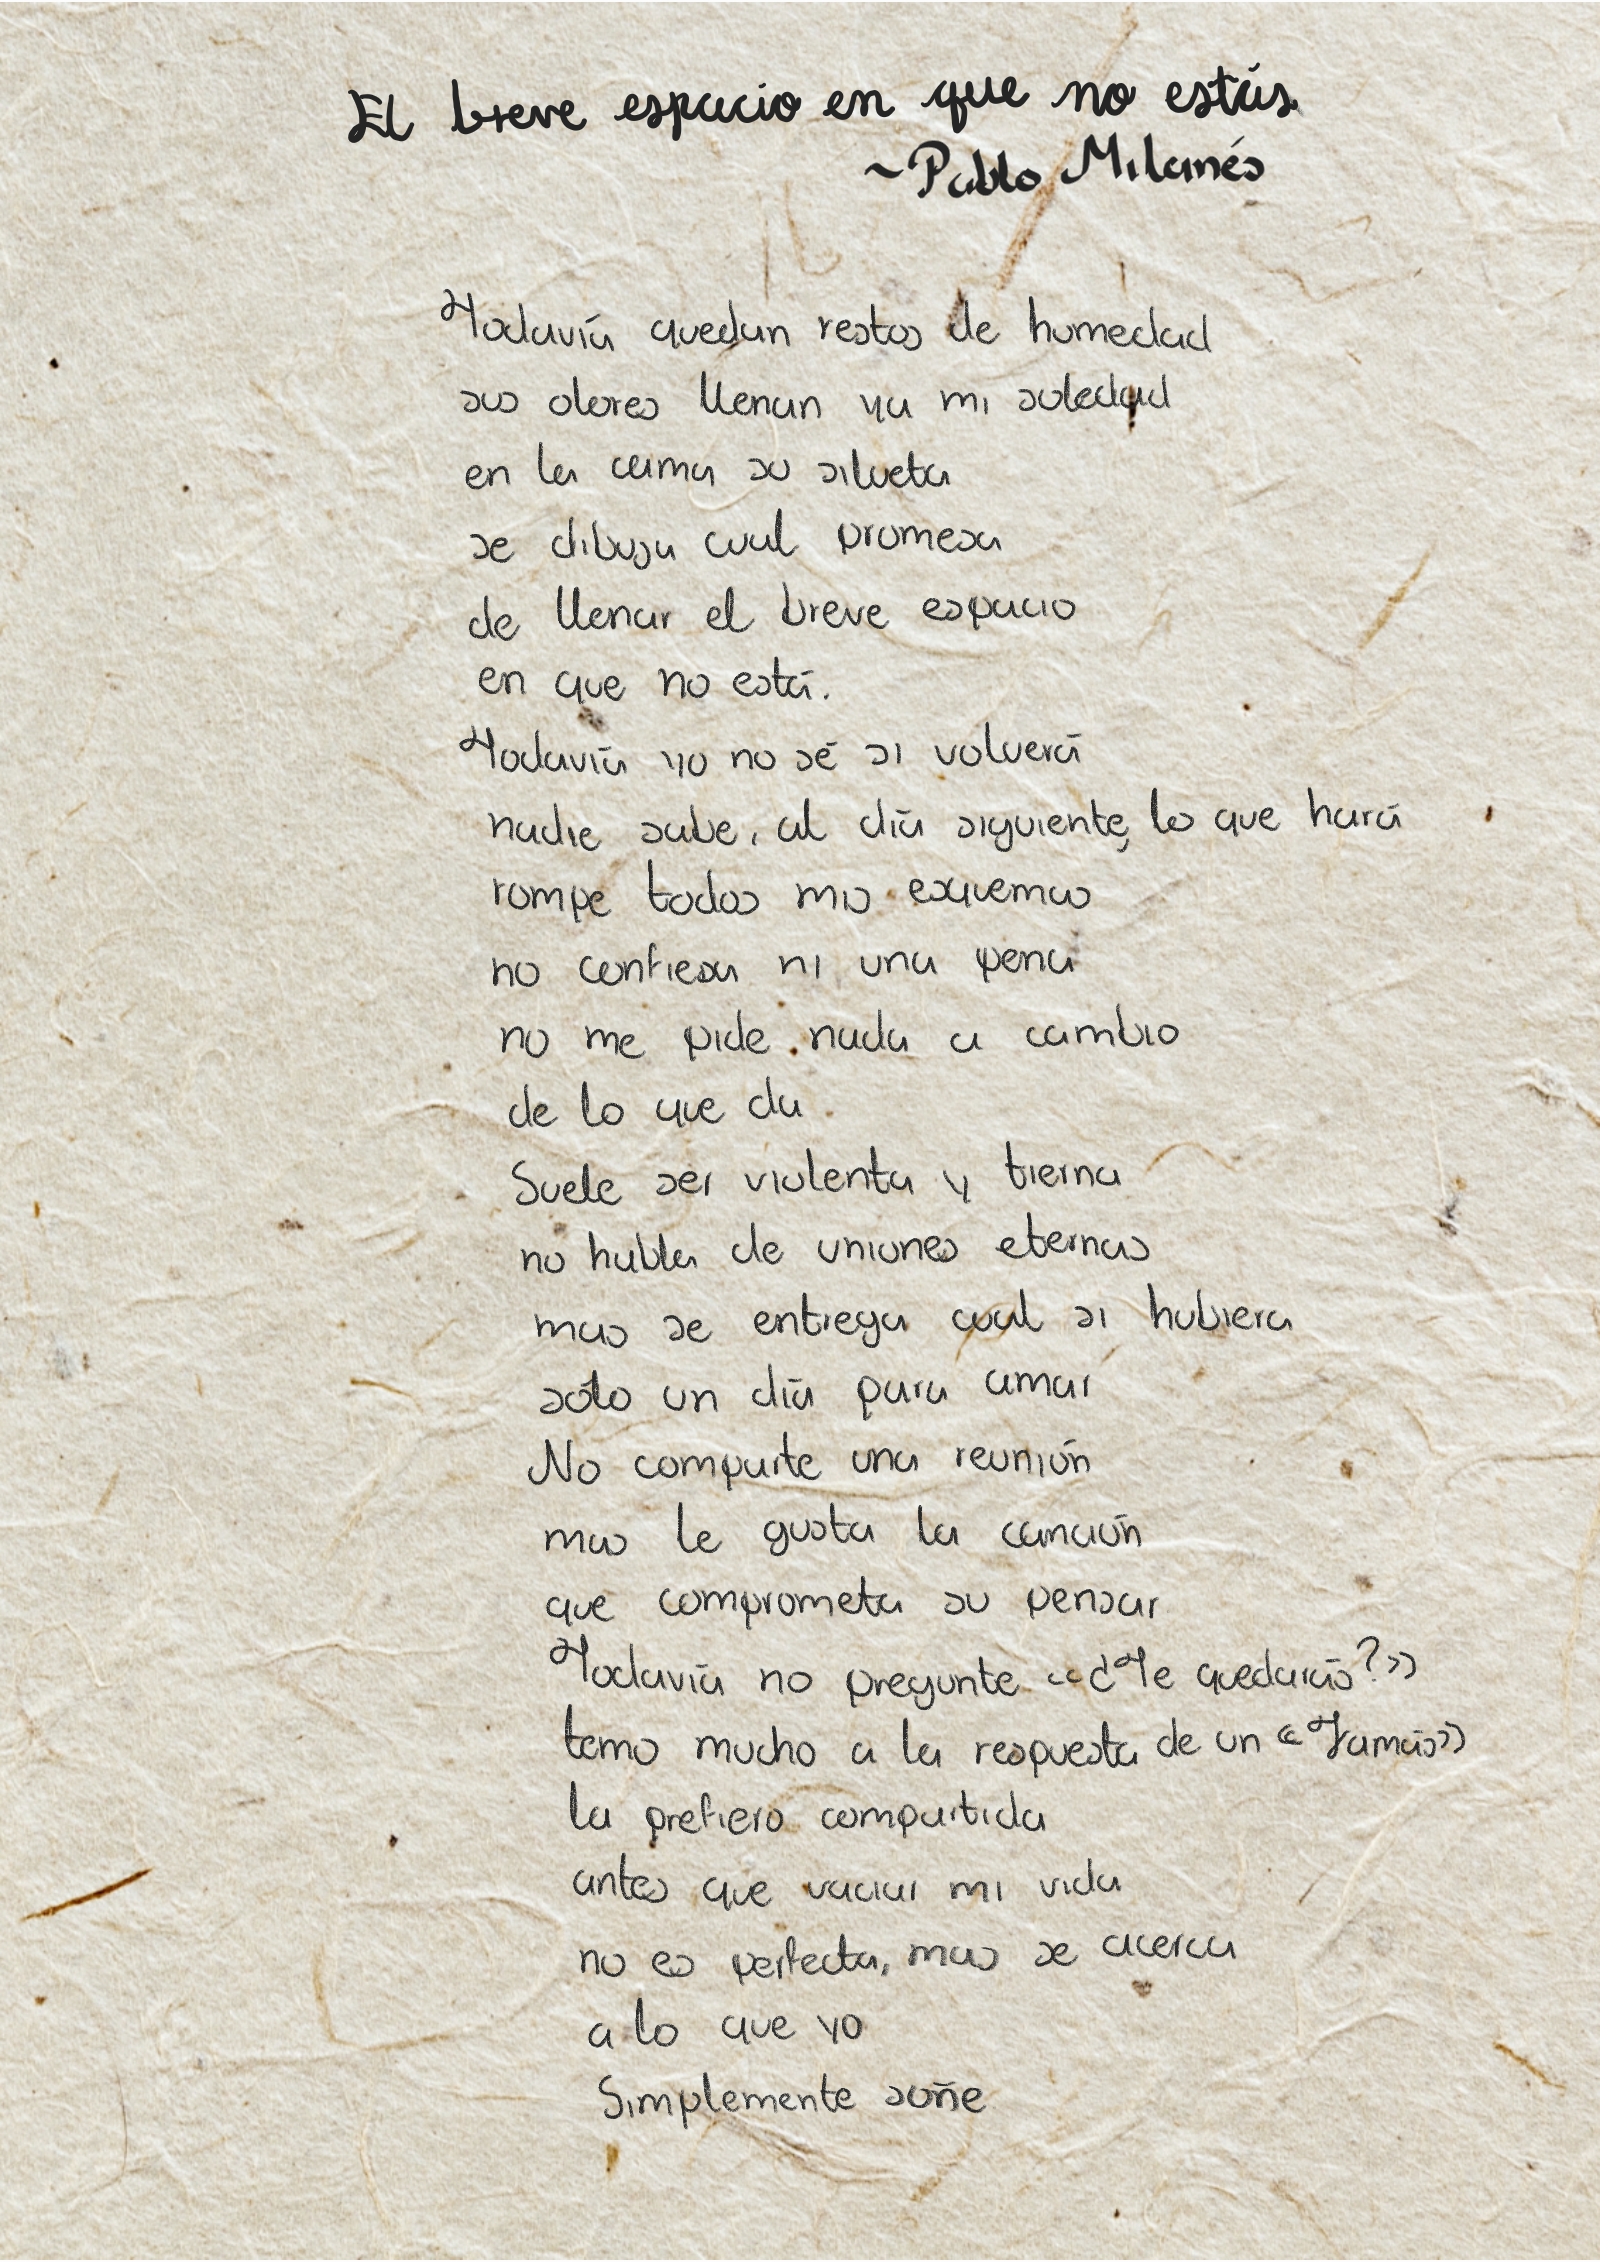 El breve espacio en que no estás
~Pablo Milanés
Todavía quedan restos de humedad
sus olores llenan ya mi soledad
en la cama su silueta
se dibuja cual promesa
de llenar el breve espacio
en que no está.
Todavía yo no sé si volverá
nadie sabe, al día siguiente, lo que hará
rompe todos mis esquemas
no confiesa ni una pena
no me pide nada a cambio
de lo que da
Suele ser violenta y tierna
no habla de uniones eternas
mas se entrega cual si hubiera
sólo un día para amar
No comparte una reunión
mas le gusta la canción
que comprometa su pensar
Todavía no pregunte «¿Te quedarás?»
temo mucho a la respuesta de un «Jamás»
la prefiero compartida
antes que vaciar mi vida
no es perfecta, mas se acerca
a lo que yo
Simplemente soñe